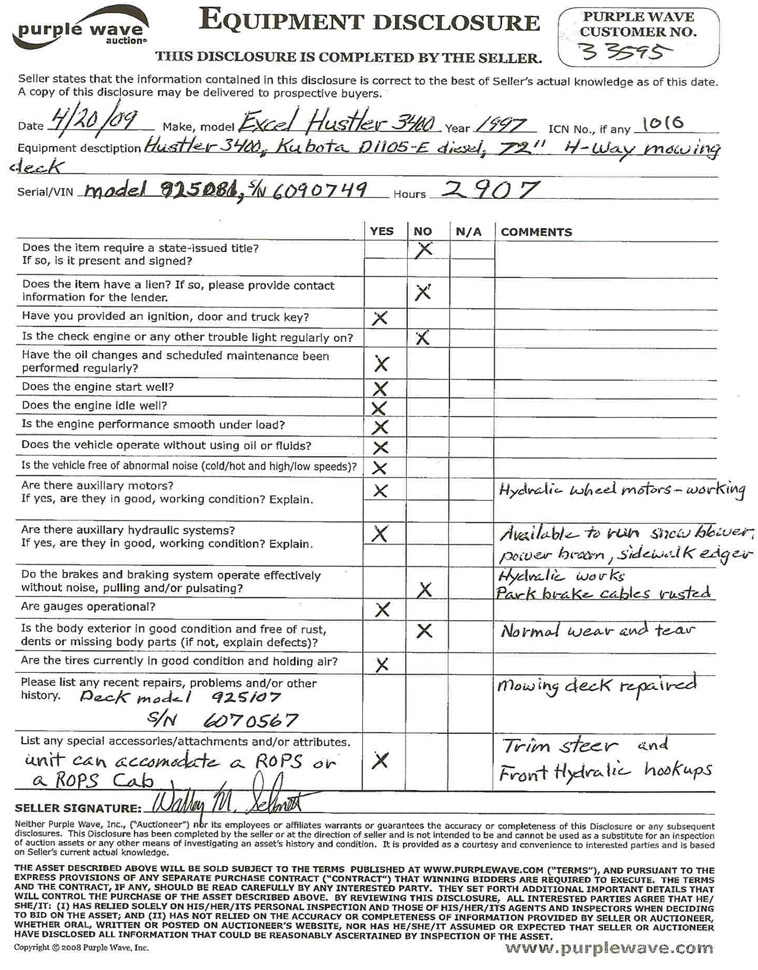 purple wave
auction®
EQUIPMENT DISCLOSURE
THIS DISCLOSURE IS COMPLETED BY THE SELLER.
PURPLE WAVE
CUSTOMER NO.
33595
Seller states that the information contained in this disclosure is correct to the best of Seller's actual knowledge as of this date.
A copy of this disclosure may be delivered to prospective buyers.
Date 4/20/09 Make, model Excel Hustler 3400 Year 1997 ICN No., if any 1016
Equipment desctiption Hustler 3400, Kubota D1105-E diesel, 72" 4-Way mowing
deck
Serial/VIN model 925081, S/N 6090749 Hours 2907
YES NO N/A COMMENTS
Does the item require a state-issued title? X
If so, is it present and signed?
Does the item have a lien? If so, please provide contact
information for the lender. X
Have you provided an ignition, door and truck key? X
Is the check engine or any other trouble light regularly on? X
Have the oil changes and scheduled maintenance been
performed regularly? X
Does the engine start well? X
Does the engine idle well? X
Is the engine performance smooth under load? X
Does the vehicle operate without using oil or fluids? X
Is the vehicle free of abnormal noise (cold/hot and high/low speeds)? X
Are there auxillary motors? X Hydralic wheel motors - working
If yes, are they in good, working condition? Explain.
Are there auxillary hydraulic systems? X Available to run snow blower,
If yes, are they in good, working condition? Explain. power broom, sidewalk edger
Do the brakes and braking system operate effectively Hydralic works
without noise, pulling and/or pulsating? X Park brake cables rusted
Are gauges operational? X
Is the body exterior in good condition and free of rust, X Normal wear and tear
dents or missing body parts (if not, explain defects)?
Are the tires currently in good condition and holding air? X
Please list any recent repairs, problems and/or other Mowing deck repaired
history. Deck model 925107
S/N 6070567
List any special accessories/attachments and/or attributes. Trim steer and
unit can accomodate a ROPS or X Front Hydralic hookups
a ROPS Cab
SELLER SIGNATURE:
Neither Purple Wave, Inc., ("Auctioneer") nor its employees or affiliates warrants or guarantees the accuracy or completeness of this Disclosure or any subsequent
disclosures. This Disclosure has been completed by the seller or at the direction of seller and is not intended to be and cannot be used as a substitute for an inspection
of auction assets or any other means of investigating an asset's history and condition. It is provided as a courtesy and convenience to interested parties and is based
on Seller's current actual knowledge.
THE ASSET DESCRIBED ABOVE WILL BE SOLD SUBJECT TO THE TERMS PUBLISHED AT WWW.PURPLEWAVE.COM ("TERMS"), AND PURSUANT TO THE
EXPRESS PROVISIONS OF ANY SEPARATE PURCHASE CONTRACT ("CONTRACT") THAT WINNING BIDDERS ARE REQUIRED TO EXECUTE. THE TERMS
AND THE CONTRACT, IF ANY, SHOULD BE READ CAREFULLY BY ANY INTERESTED PARTY. THEY SET FORTH ADDITIONAL IMPORTANT DETAILS THAT
WILL CONTROL THE PURCHASE OF THE ASSET DESCRIBED ABOVE. BY REVIEWING THIS DISCLOSURE, ALL INTERESTED PARTIES AGREE THAT HE/
SHE/IT: (I) HAS RELIED SOLELY ON HIS/HER/ITS PERSONAL INSPECTION AND THOSE OF HIS/HER/ITS AGENTS AND INSPECTORS WHEN DECIDING
TO BID ON THE ASSET; AND (II) HAS NOT RELIED ON THE ACCURACY OR COMPLETENESS OF INFORMATION PROVIDED BY SELLER OR AUCTIONEER,
WHETHER ORAL, WRITTEN OR POSTED ON AUCTIONEER'S WEBSITE, NOR HAS HE/SHE/IT ASSUMED OR EXPECTED THAT SELLER OR AUCTIONEER
HAVE DISCLOSED ALL INFORMATION THAT COULD BE REASONABLY ASCERTAINED BY INSPECTION OF THE ASSET.
Copyright © 2008 Purple Wave, Inc.
www.purplewave.com